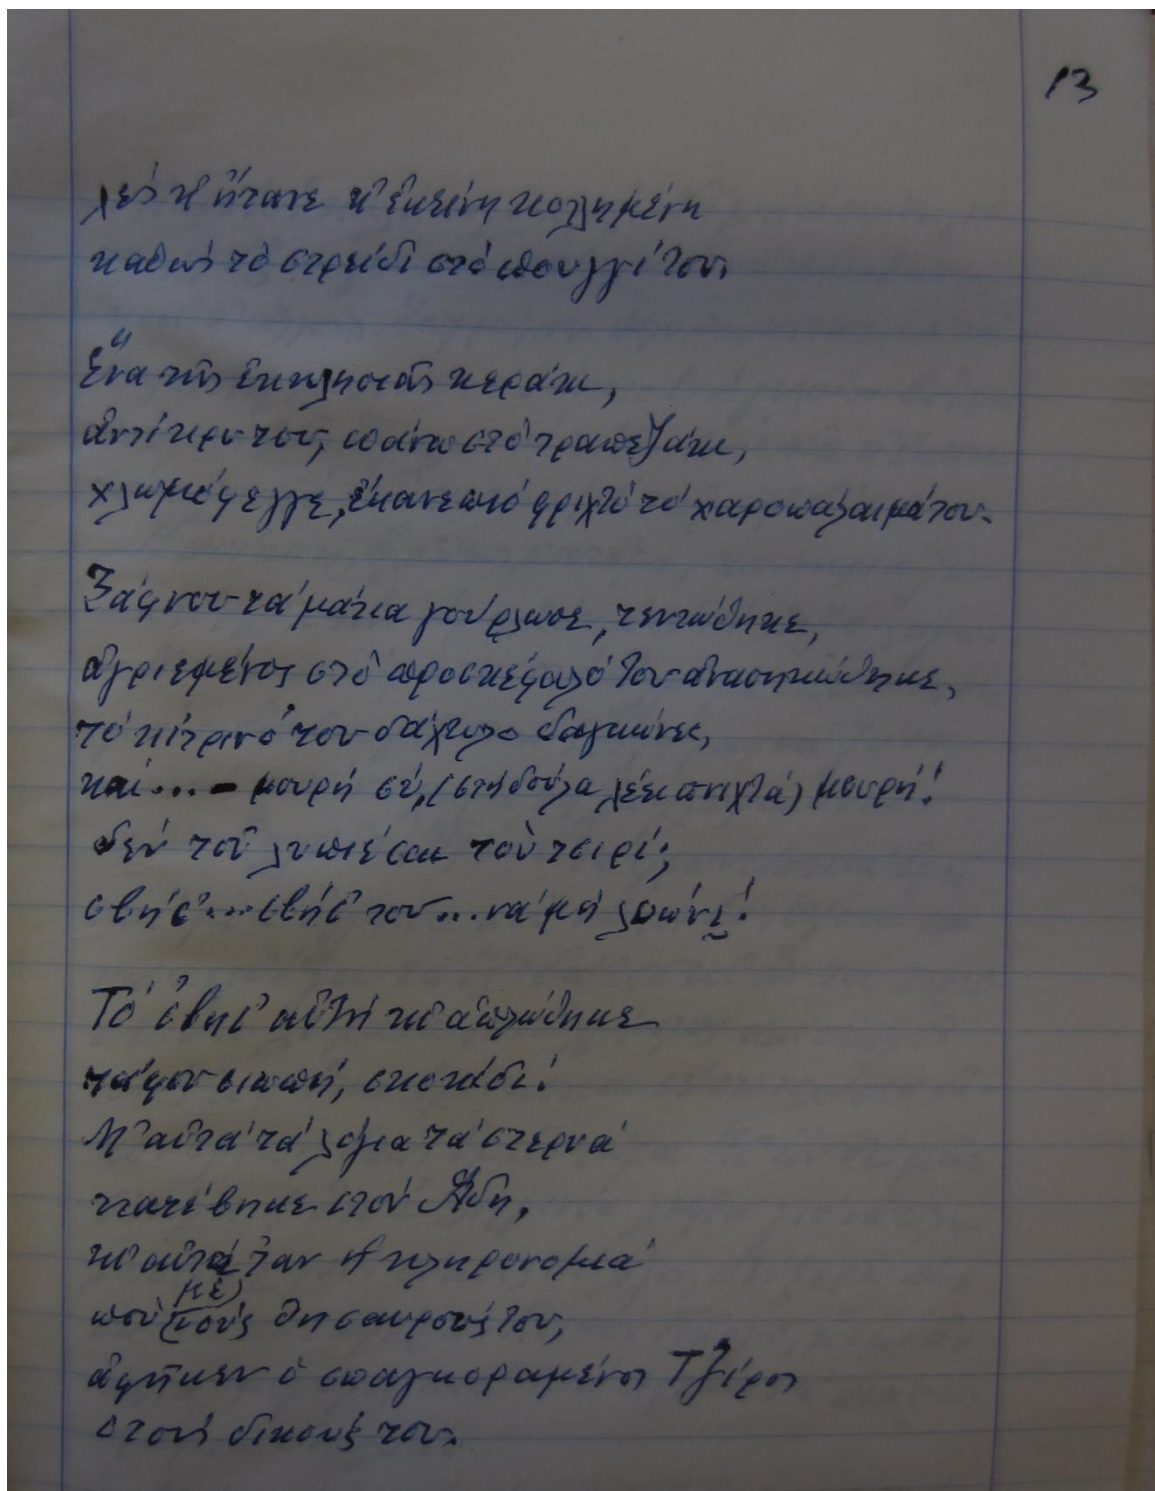 13
λὲς κ' ἤτανε κ' ἐκείνη κολλημένη
καθὼς τὸ στρείδι στὸ πουγγί του.
Ἕνα τῆς ἐκκλησιᾶς κεράκι,
ἀντίκρυ του, πάνω στὸ τραπεζάκι,
χλωμόφεγγε, ἔκανε πιὸ φριχτὸ τὸ χαροπάλαιμά του.
Ξάφνου τὰ μάτια γούρλωσε, τεντώθηκε,
ἀγριεμένος στὸ προσκέφαλό του ἀνασηκώθηκε,
τὸ κίτρινό του δάχτυλο δαγκώνει,
καὶ... - μουρὴ σύ, (στὴ δούλα λέει πνιχτά) μουρή!
δὲν τοῦ λυπιέσαι τοῦ κερί;
σβῆσ'... σβῆσ' του... νὰ μὴ λυώνῃ!
Τὸ ἔσβησ' αὐτὴ κι' ἁπλώθηκε
τάφου σιωπή, σκοτάδι!
Μ' αὐτὰ τὰ λόγια τὰ στερνὰ
κατέβηκε στὸν Ἅδη,
κι' αὐτὰ ἦταν ἡ κληρονομιὰ
ποὺ (μὲ) τοὺς θησαυρούς του,
ἀφῆκεν ὁ σπαγκοραμένος Τζίρος
στοὺς δικούς του.